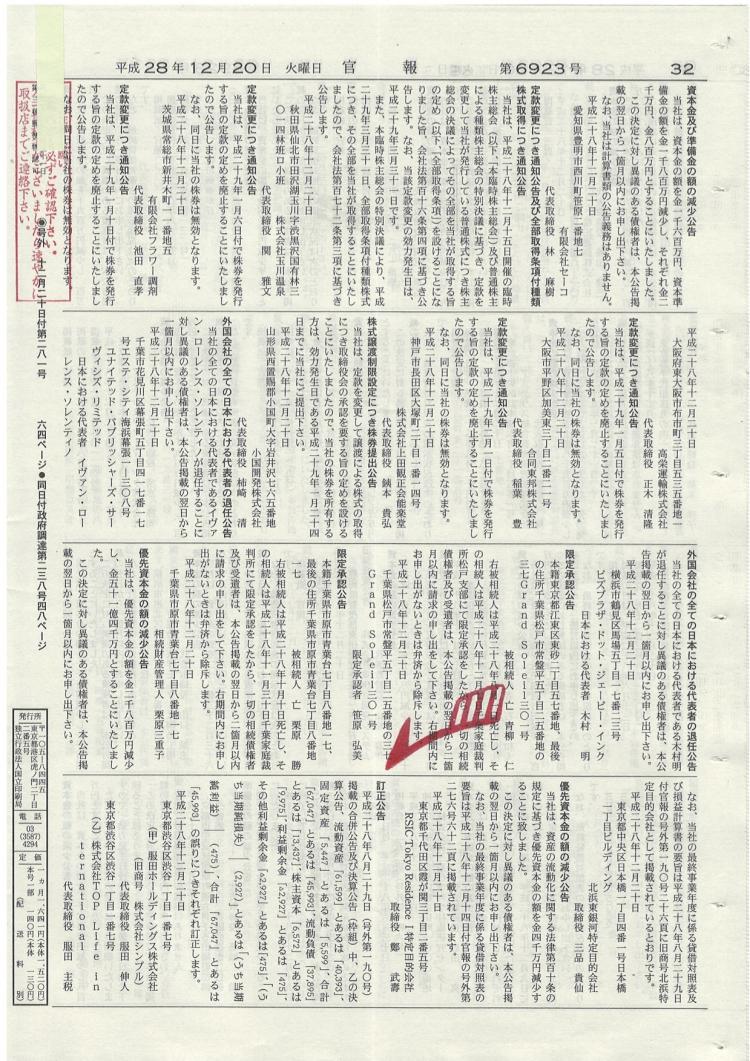 平成28年12月20日 火曜日 官報 第6923号 32
資本金及び準備金の額の減少公告
当社は、資本金の額を金一千六百万円、資本準
備金の額を金一千八百万円減少し、それぞれ金二
千万円、金八百万円とすることにいたしました。
この決定に対し異議のある債権者は、本公告掲
載の翌日から一箇月以内にお申し出下さい。
なお、当社は計算書類の公告義務はありません。
平成二十八年十二月二十日
愛知県豊明市西川町笹原二番地七
有限会社セーコ
代表取締役 林 麻樹
定款変更につき通知公告及び全部取得条項付種類
株式取得につき通知公告
当社は、平成二十八年十二月十五日開催の臨時
株主総会(以下「本臨時株主総会」)及び普通株主
による種類株主総会の特別決議に基づき、定款を
変更して当社が発行している普通株式につき株主
総会の決議によってその全部を当社が取得する旨
の定め(以下、「全部取得条項」)を設けることにな
りました旨、会社法第百十六条第四項に基づき公
告します。なお、当該定款変更の効力発生日は、
平成二十九年三月三十一日です。
また、本臨時株主総会の特別決議により、平成
二十九年三月三十一日に全部取得条項付種類株式
につき、その全部を当社が取得することにいたし
ましたので、会社法第百七十二条第三項に基づき
公告します。
平成二十八年十二月二十日
秋田県仙北市田沢湖玉川字渋黒沢国有林三
〇一四林班ロ小班 株式会社玉川温泉
代表取締役 関 雅文
定款変更につき通知公告
当社は、平成二十九年一月六日付で株券を発行
する旨の定款の定めを廃止することにいたしまし
たので公告します。
なお、同日に当社の株券は無効となります。
平成二十八年十二月二十日
茨城県常総市新井木町一番地五
有限会社フラワー調剤
代表取締役 池田 直孝
定款変更につき通知公告
当社は、平成二十九年一月十日付で株券を発行
する旨の定款の定めを廃止することにいたしまし
たので公告します。
なお、同日に当社の株券は無効となります。
平成二十八年十二月二十日
大阪府東大阪市布市町三丁目五三五番地一
高栄運輸株式会社
代表取締役 正木 清隆
定款変更につき通知公告
当社は、平成二十九年一月五日付で株券を発行
する旨の定款の定めを廃止することにいたしまし
たので公告します。
なお、同日に当社の株券は無効となります。
平成二十八年十二月二十日
大阪市平野区加美東三丁目一番二一号
合同東邦株式会社
代表取締役 稲葉 豊
定款変更につき通知公告
当社は、平成二十九年二月一日付で株券を発行
する旨の定款の定めを廃止することにいたしまし
たので公告します。
なお、同日に当社の株券は無効となります。
平成二十八年十二月二十日
神戸市長田区大塚町二丁目一番一四号
株式会社上田観正会能楽堂
代表取締役 銕本 貴弘
株式譲渡制限設定につき株券提出公告
当社は、定款を変更して譲渡による株式の取得
につき取締役会の承認を要する旨の定めを設ける
ことにいたしましたので、当社の株券を所有する
方は、効力発生日である平成二十九年一月二十四
日までに当社にご提出下さい。
平成二十八年十二月二十日
山形県西置賜郡小国町大字岩井沢七六五番地
小国開発株式会社
代表取締役 柿崎 清
外国会社の全ての日本における代表者の退任公告
当社の全ての日本における代表者であるイヴァ
ン・ローレンス・ソレンティノが退任することに
対し異議のある債権者は、本公告掲載の翌日から
一箇月以内にお申し出下さい。
平成二十八年十二月二十日
千葉市花見川区幕張町五丁目四一七番一七
号エステ・シティ海浜幕張一―三〇八号
ユナイテッド・パブリッシャーズ・サー
ヴィシズ・リミテッド
日本における代表者 イヴァン・ロー
レンス・ソレンティノ
外国会社の全ての日本における代表者の退任公告
当社の全ての日本における代表者である木村明
が退任することに対し異議のある債権者は、本公
告掲載の翌日から一箇月以内にお申し出下さい。
平成二十八年十二月二十日
横浜市鶴見区馬場五丁目一七番二三号
ビズプラザ・ドット・ジェーピー・インク
日本における代表者 木村 明
限定承認公告
本籍東京都江東区東砂二丁目五七番地、最後
の住所千葉県松戸市常盤平五丁目二五番地の
三七Grand Soleil三〇一号
被相続人 亡 青柳 仁
右被相続人は平成二十八年
の相続人は平成二十八年十
所松戸支部にて限定承認をした
債権者及び受遺者は、本公告掲載の翌日から二箇
月以内に請求の申し出をして下さい。右期間内に
お申し出がないときは弁済から除斥します。
平成二十八年十二月二十日
千葉県松戸市常盤平五丁目二五番地の三七
Grand Soleil三〇一号
限定承認者 笹原 弘美
限定承認公告
本籍千葉県市原市青葉台七丁目八番地、
最後の住所千葉県市原市青葉台七丁目八番地
一七
被相続人 亡 栗原 勝
右被相続人は平成二十八年十月十日死亡し、そ
の相続人は平成二十八年十一月三十日千葉家庭裁
判所にて限定承認をしたから、一切の相続債権者
及び受遺者は、本公告掲載の翌日から二箇月以内
に請求の申し出をして下さい。右期間内にお申し
出がないときは弁済から除斥します。
平成二十八年十二月二十日
千葉県市原市青葉台七丁目八番地一七
相続財産管理人 栗原三重子
優先資本金の額の減少公告
当社は、優先資本金の額を金一千八百万円減少
し、金五十一億四千万円とすることにいたしまし
た。
この決定に対し異議のある債権者は、本公告掲
載の翌日から一箇月以内にお申し出下さい。
なお、当社の最終事業年度に係る貸借対照表及
び損益計算書の要旨は平成二十八年八月二十九日
付官報の号外第一九〇号二十六頁に旧商号北浜特
定目的会社として掲載されているとおりです。
平成二十八年十二月二十日
東京都中央区日本橋一丁目四番一号日本橋
一丁目ビルディング
北浜東銀河特定目的会社
取締役 三品 貴仙
優先資本金の額の減少公告
当社は、資産の流動化に関する法律第百十条の
規定に基づき優先資本金の額を金四千万円減少す
ることに致しました。
この決定に対し異議のある債権者は、本公告掲
載の翌日から一箇月以内にお申し出下さい。
なお、当社の最終事業年度に係る貸借対照表の
要旨は平成二十八年十二月十四日付官報の号外第
二七六号六十二頁に掲載されています。
平成二十八年十二月二十日
東京都千代田区霞が関三丁目二番五号
RSIC Tokyo Residence I特定目的会社
取締役 鄭 武壽
訂正公告
平成二十八年八月二十九日(号外第一九〇号)
掲載の合併公告及び決算公告(枠組)中、乙の決
算公告、流動資産「61,599」とあるは「40,393」、
固定資産「5,447」とあるは「5,599」、合計
「67,047」とあるは「45,993」、流動負債「37,895」
とあるは「13,437」、株主資本「6,572」とあるは
「9,975」、利益剰余金「62,927」とあるは「475」、
その他利益剰余金「62,927」とあるは「475」、(う
ち当期純損失)(2,927)とあるは(うち当期
純利益)(475)、合計「67,047」とあるは
「45,993」の誤りにつきそれぞれ訂正します。
平成二十八年十二月二十日
東京都渋谷区渋谷一丁目一番七号
(甲)服田ホールディングス株式会社
(旧商号 株式会社シンプル)
代表取締役 服田 伸人
東京都渋谷区渋谷一丁目一番七号
(乙)株式会社TOP Life in
ternational
代表取締役 服田 主税
必ずご確認下さい。
取扱店までご連絡下さい。
号外 十二月二十日付第二八一号 六四ページ●同日付政府調達第二三八号四八ページ
発行所
〒一〇五―八四四五
東京都港区虎ノ門二丁目
二番五号
独立行政法人国立印刷局
電話
03
(3587)
4294
定価
一カ月一、六四一円(本体一、五二〇円)
本号一部 一四〇円(本体 一三〇円)
(配送料別)